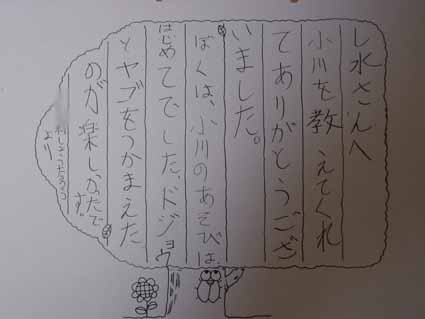 し水さんへ
小川を教えてくれ
てありがとうござ
いました。
ぼくは、小川のあそびは、
はじめてでした。ドジョウ
とヤゴをつかまえた
のが楽しかたで
す。
より